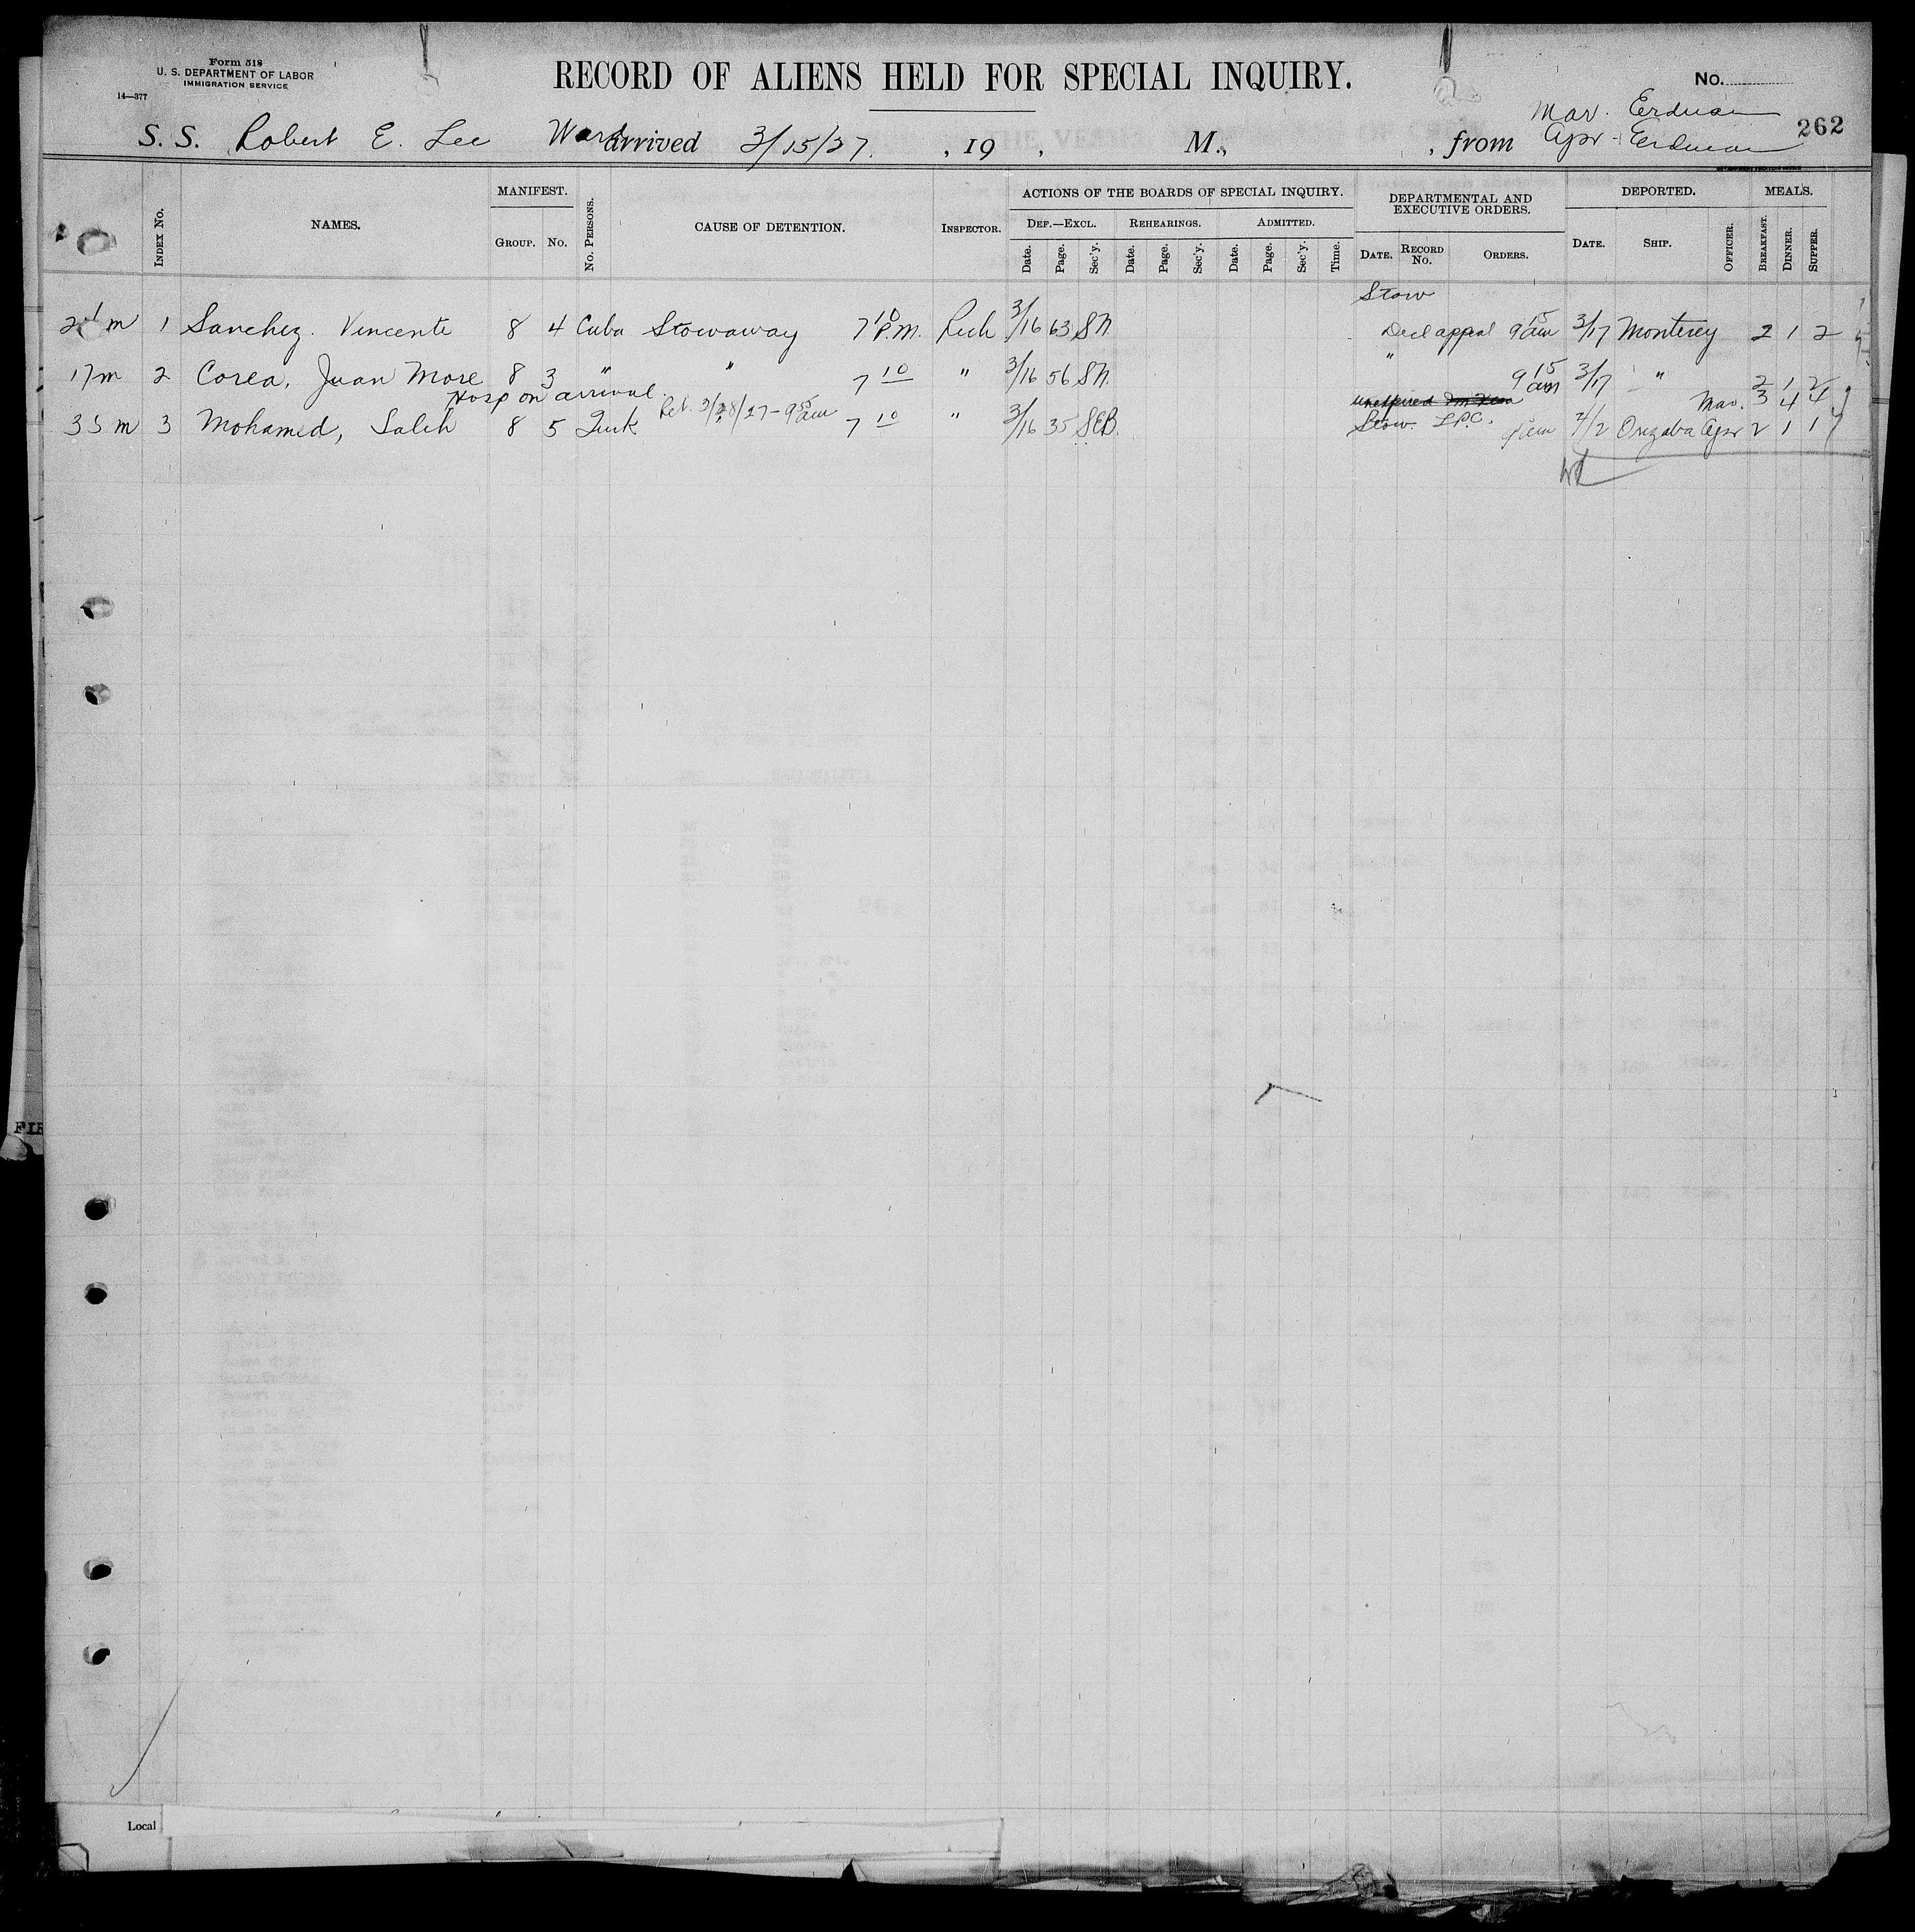 Form 518
U. S. DEPARTMENT OF LABOR
IMMIGRATION SERVICE
14—377
RECORD OF ALIENS HELD FOR SPECIAL INQUIRY.
No.
262
Mar. Erdman
S. S. Robert E. Lee Ward arrived 3/15/27. , 19 , M., , from Apr - Erdman
INDEX No. NAMES. MANIFEST. GROUP. No. No. PERSONS. CAUSE OF DETENTION. INSPECTOR.
ACTIONS OF THE BOARDS OF SPECIAL INQUIRY.
DEF.—EXCL. REHEARINGS. ADMITTED.
Date. Page. Sec'y. Date. Page. Sec'y. Date. Page. Sec'y. Time.
DEPARTMENTAL AND EXECUTIVE ORDERS.
DATE. RECORD No. ORDERS.
DEPORTED.
DATE. SHIP. OFFICER.
MEALS.
BREAKFAST. DINNER. SUPPER.
Stow
m 1 Sanchez. Vincente 8 4 Cuba Stowaway 7 10 P.M. 3/16 63 SN. Decl appeal 9 15 am 3/17 Monterey 2 1 2
17 m 2 Corea, Juan More 8 3 " " 7 10 " 3/16 56 SN. " 9 15 am 3/17 " 2 1 2
Hosp on arrival 3/28/27 - 9 am Mar. 3 4 4
35 m 3 Mohamed, Saleh 8 5 Turk 7 10 " 3/16 35 SEB. Stow. LPC. am 4/2 Orizaba Apr 2 1 1
Local
FIR